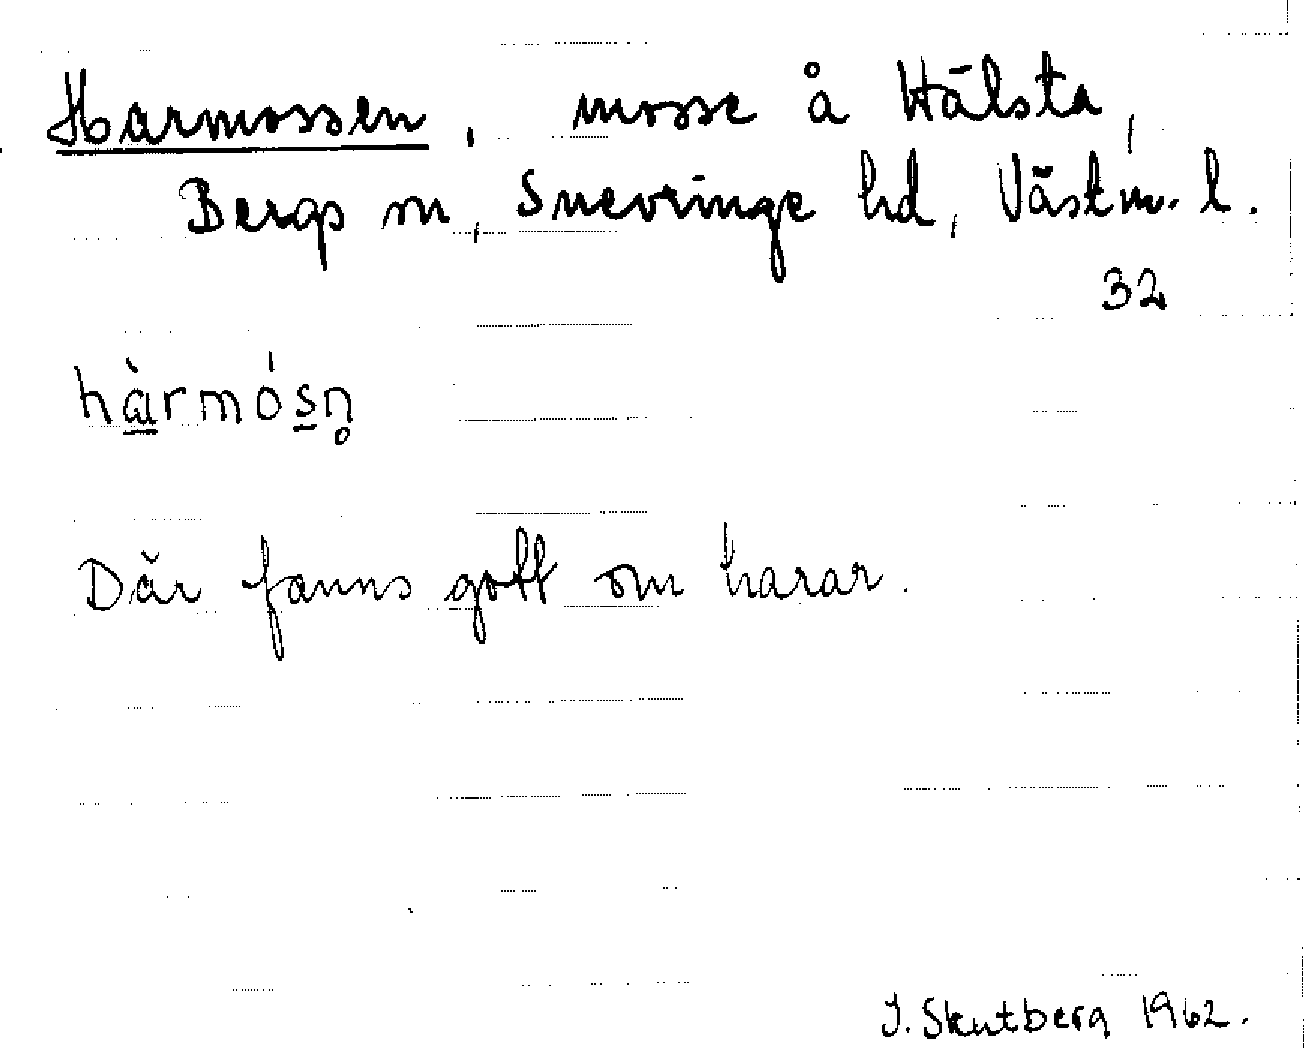 Harmossen, mosse å Hälsta,
Bergs sn, Snevringe hd, Västm. l.
32
hàrmósn̥
Där fanns gott om harar.
J. Skutberg 1962.